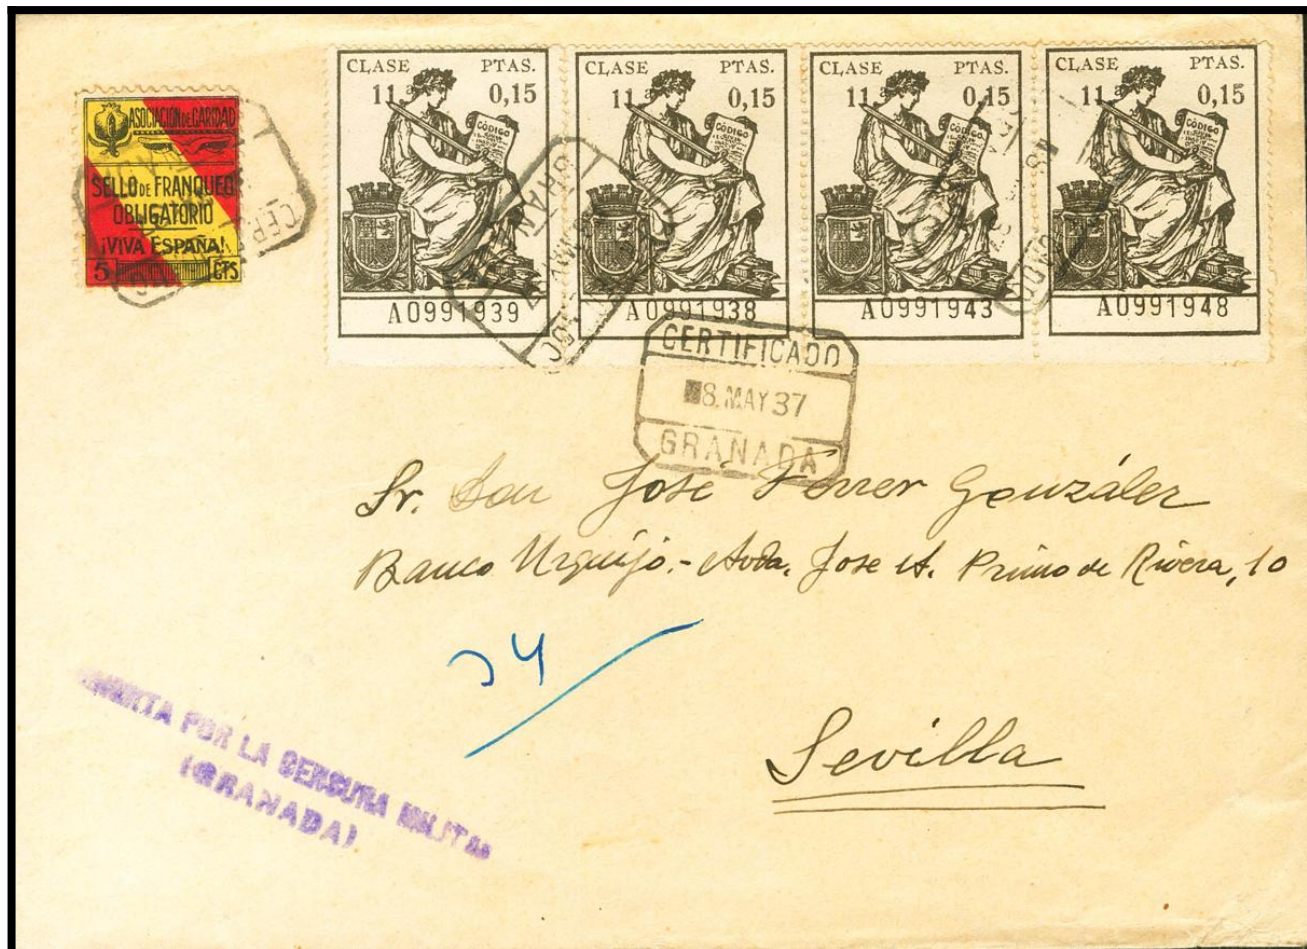 ASOCIACIÓN DE CARIDAD
SELLO DE FRANQUEO
OBLIGATORIO
¡VIVA ESPAÑA!
5 CTS
CLASE PTAS.
11ª 0,15
CÓDIGO
A0991939
CLASE PTAS.
11ª 0,15
CÓDIGO
A0991938
CLASE PTAS.
11ª 0,15
CÓDIGO
A0991943
CLASE PTAS.
11ª 0,15
CÓDIGO
A0991948
CERTIFICADO
8.MAY 37
GRANADA
Sr. Don José Ferrer González
Banco Urquijo.- Avda. Jose A. Primo de Rivera, 10
34
Sevilla
POR LA CENSURA MILITAR
(GRANADA)